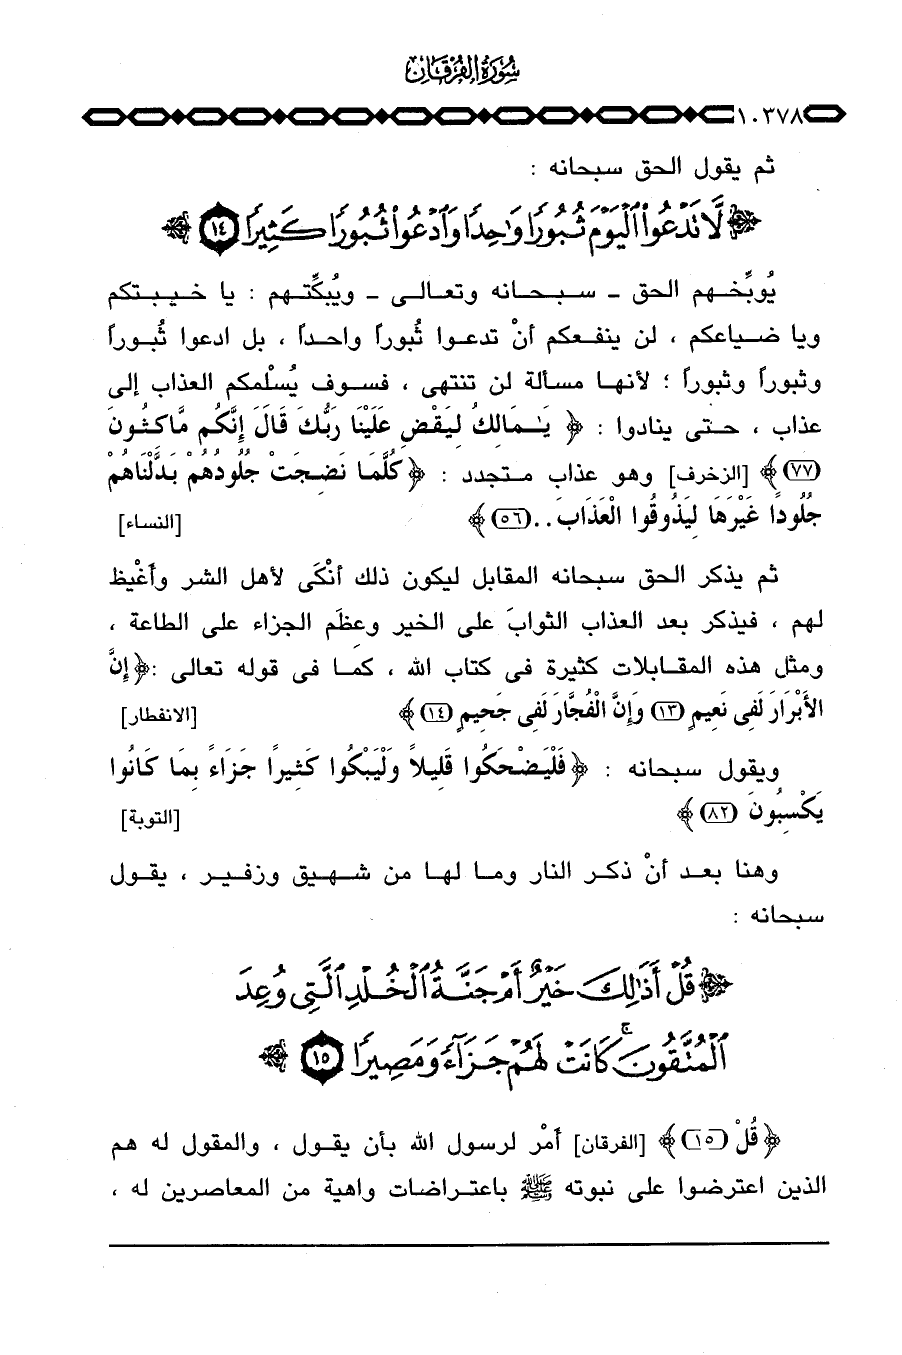 سُورَةُ الفُرْقَان
١٠٣٧٨
ثم يقول الحق سبحانه :
﴿لَّا تَدْعُوا۟ الْيَوْمَ ثُبُورًا وَٰحِدًا وَادْعُوا۟ ثُبُورًا كَثِيرًا ١٤﴾
يُوبِّخهم الحق - سبحانه وتعالى - ويُبكِّتهم : يا خيبتكم
ويا ضياعكم ، لن ينفعكم أنْ تدعوا ثُبوراً واحداً ، بل ادعوا ثُبوراً
وثبوراً وثبوراً ؛ لأنها مسألة لن تنتهى ، فسوف يُسلْمكم العذاب إلى
عذاب ، حتى ينادوا : ﴿ يَـٰمَالِكُ لِيَقْضِ عَلَيْنَا رَبُّكَ قَالَ إِنَّكُم مَّاكِثُونَ
(٧٧)﴾ [الزخرف] وهو عذاب متجدد : ﴿كُلَّمَا نَضِجَتْ جُلُودُهُم بَدَّلْنَاهُمْ
جُلُودًا غَيْرَهَا لِيَذُوقُوا الْعَذَابَ..(٥٦)﴾ [النساء]
ثم يذكر الحق سبحانه المقابل ليكون ذلك أنْكَى لأهل الشر وأغْيظ
لهم ، فيذكر بعد العذاب الثوابَ على الخير وعظَم الجزاء على الطاعة ،
ومثل هذه المقابلات كثيرة فى كتاب الله ، كما فى قوله تعالى :﴿إِنَّ
الأَبْرَارَ لَفِى نَعِيمٍ (١٣) وَإِنَّ الْفُجَّارَ لَفِى جَحِيمٍ (١٤)﴾ [الانفطار]
ويقول سبحانه : ﴿فَلْيَضْحَكُوا قَلِيلاً وَلْيَبْكُوا كَثِيرًا جَزَاءً بِمَا كَانُوا
يَكْسِبُونَ (٨٢)﴾ [التوبة]
وهنا بعد أنْ ذكر النار وما لها من شهيق وزفير ، يقول
سبحانه :
﴿قُلْ أَذَٰلِكَ خَيْرٌ أَمْ جَنَّةُ الْخُلْدِ الَّتِى وُعِدَ
الْمُتَّقُونَ ۚ كَانَتْ لَهُمْ جَزَآءً وَمَصِيرًا ١٥﴾
﴿قُلْ (١٥)﴾ [الفرقان] أمْر لرسول الله بأن يقول ، والمقول له هم
الذين اعترضوا على نبوته ﷺ باعتراضات واهية من المعاصرين له ،